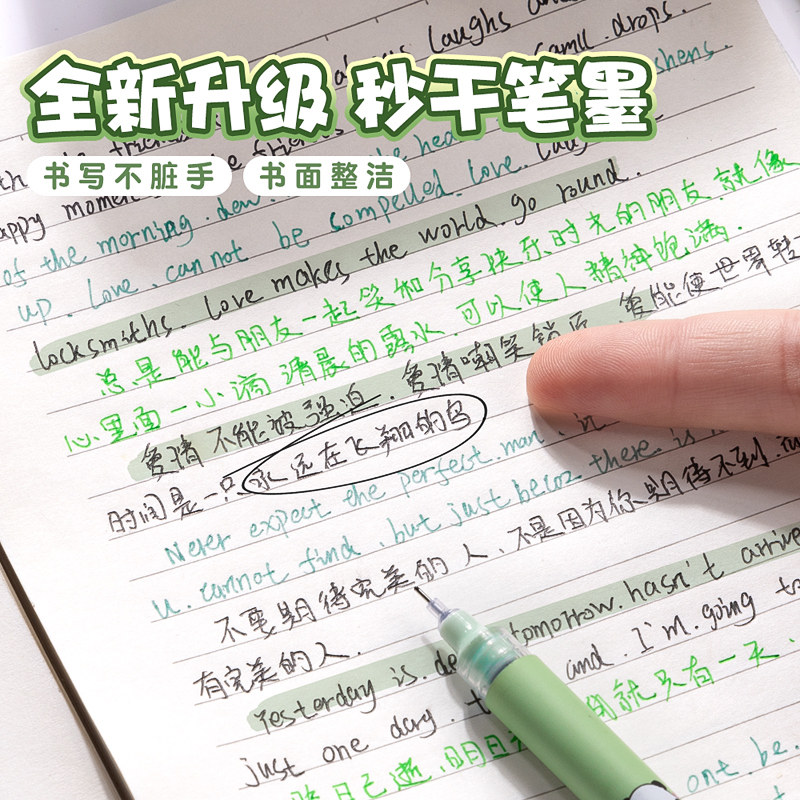 全新升级 秒干笔墨
书写不脏手 书面整洁
laughs
drops.
of the morning. dew
the hea
shens.
up. Love. cannot be compelled. Love.
locksmiths. Love makes the world go round.
总是能与朋友一起笑和分享快乐时光的朋友,就像
心里面一小滴清晨的露水.可以使人精神饱满.
爱情不能被强迫.爱情嘲笑锁匠.爱能使世界转
时间是一只永远在飞翔的鸟
Never expect the perfect man. in
u. cannot find. but just becoz there is
不要期待完美的人、不是因为你期待不到.而
有完美的人.
Yesterday is. de tomorrow. hasn't arrive
just one day. and. I'm. going to
昨日已逝.明日 就只有一天.
ont. be.